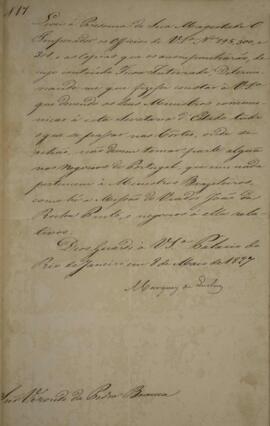 Levei à Presença de Sua Magestade O
Imperador os Officios de V.Sª Nºs 295, 300, e
301, e as copias que os acompanharão, de
cujo contheudo Ficou Inteirado, Determi
nando-me que fizesse constar à V.Sª
que devendo os Seus Ministros communi
car à esta Secretaria d'Estado tudo
o que se passar nas Cortes, onde se
achão, não devem tomar parte alguma
nos Negocios de Portugal, que em nada
pertencem à Ministros Brasileiros,
como he a Missão do Veador João da
Rocha Pinto, e negocios à ella rela
tivos.
Deos Guarde à V.Sª Palacio do
Rio de Janeiro em 8 de Maio de 1827
Marquez de Queluz
Snr Visconde da Pedra Branca